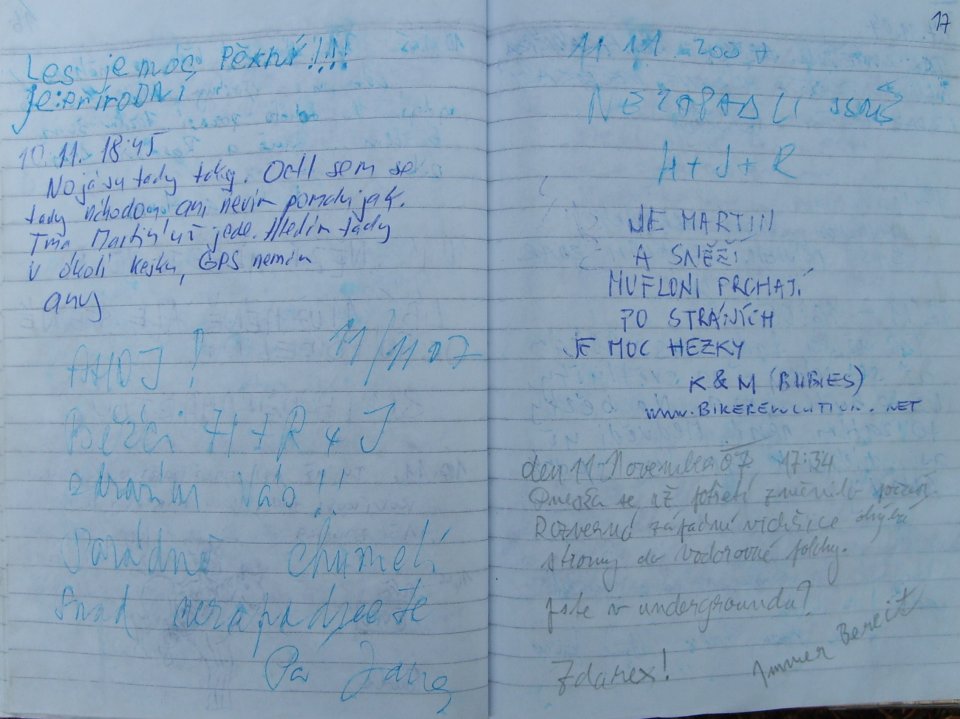 Les je moc Pěkný!!!!
je: příroDNí
10.11. 18:45
No já su tady taky. Octl sem se
tady náhodou ani nevím pomalu jak.
Tma Martin už jede. Hledím tady
v okolí kešku, GPS nemám
AHOJ! 11/11 07
Běžci H+R+J
zdraví Vás!!
Parádně chumelí
Snad nezapadnete
Pa Jana
17
11.11.2007
NEZAPADLI JSME
H+J+R
JE MARTIN
A SNĚŽÍ
MUFLONI PRCHAJÍ
PO STRÁNÍCH
JE MOC HEZKY
K&M (BUBIES)
www.BIKEREVOLUTION.NET
den 11. Novembra 07 17:34
se už potřetí změnilo počasí.
západní vichřice ohýbá
stromy do vodorovné polohy.
jste v undergroundu?
Zdarex! Immer Bereit